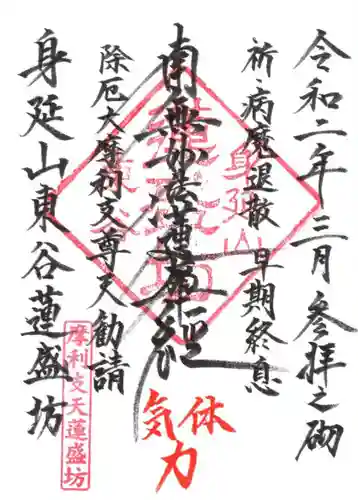 令和二年三月参拝之砌
祈・病魔退散 早期終息
南無妙法蓮華経
除厄大摩利支尊天 勧請
身延山東谷蓮盛坊
身延山
蓮盛坊
東谷
摩利支天蓮盛坊
休
気
力